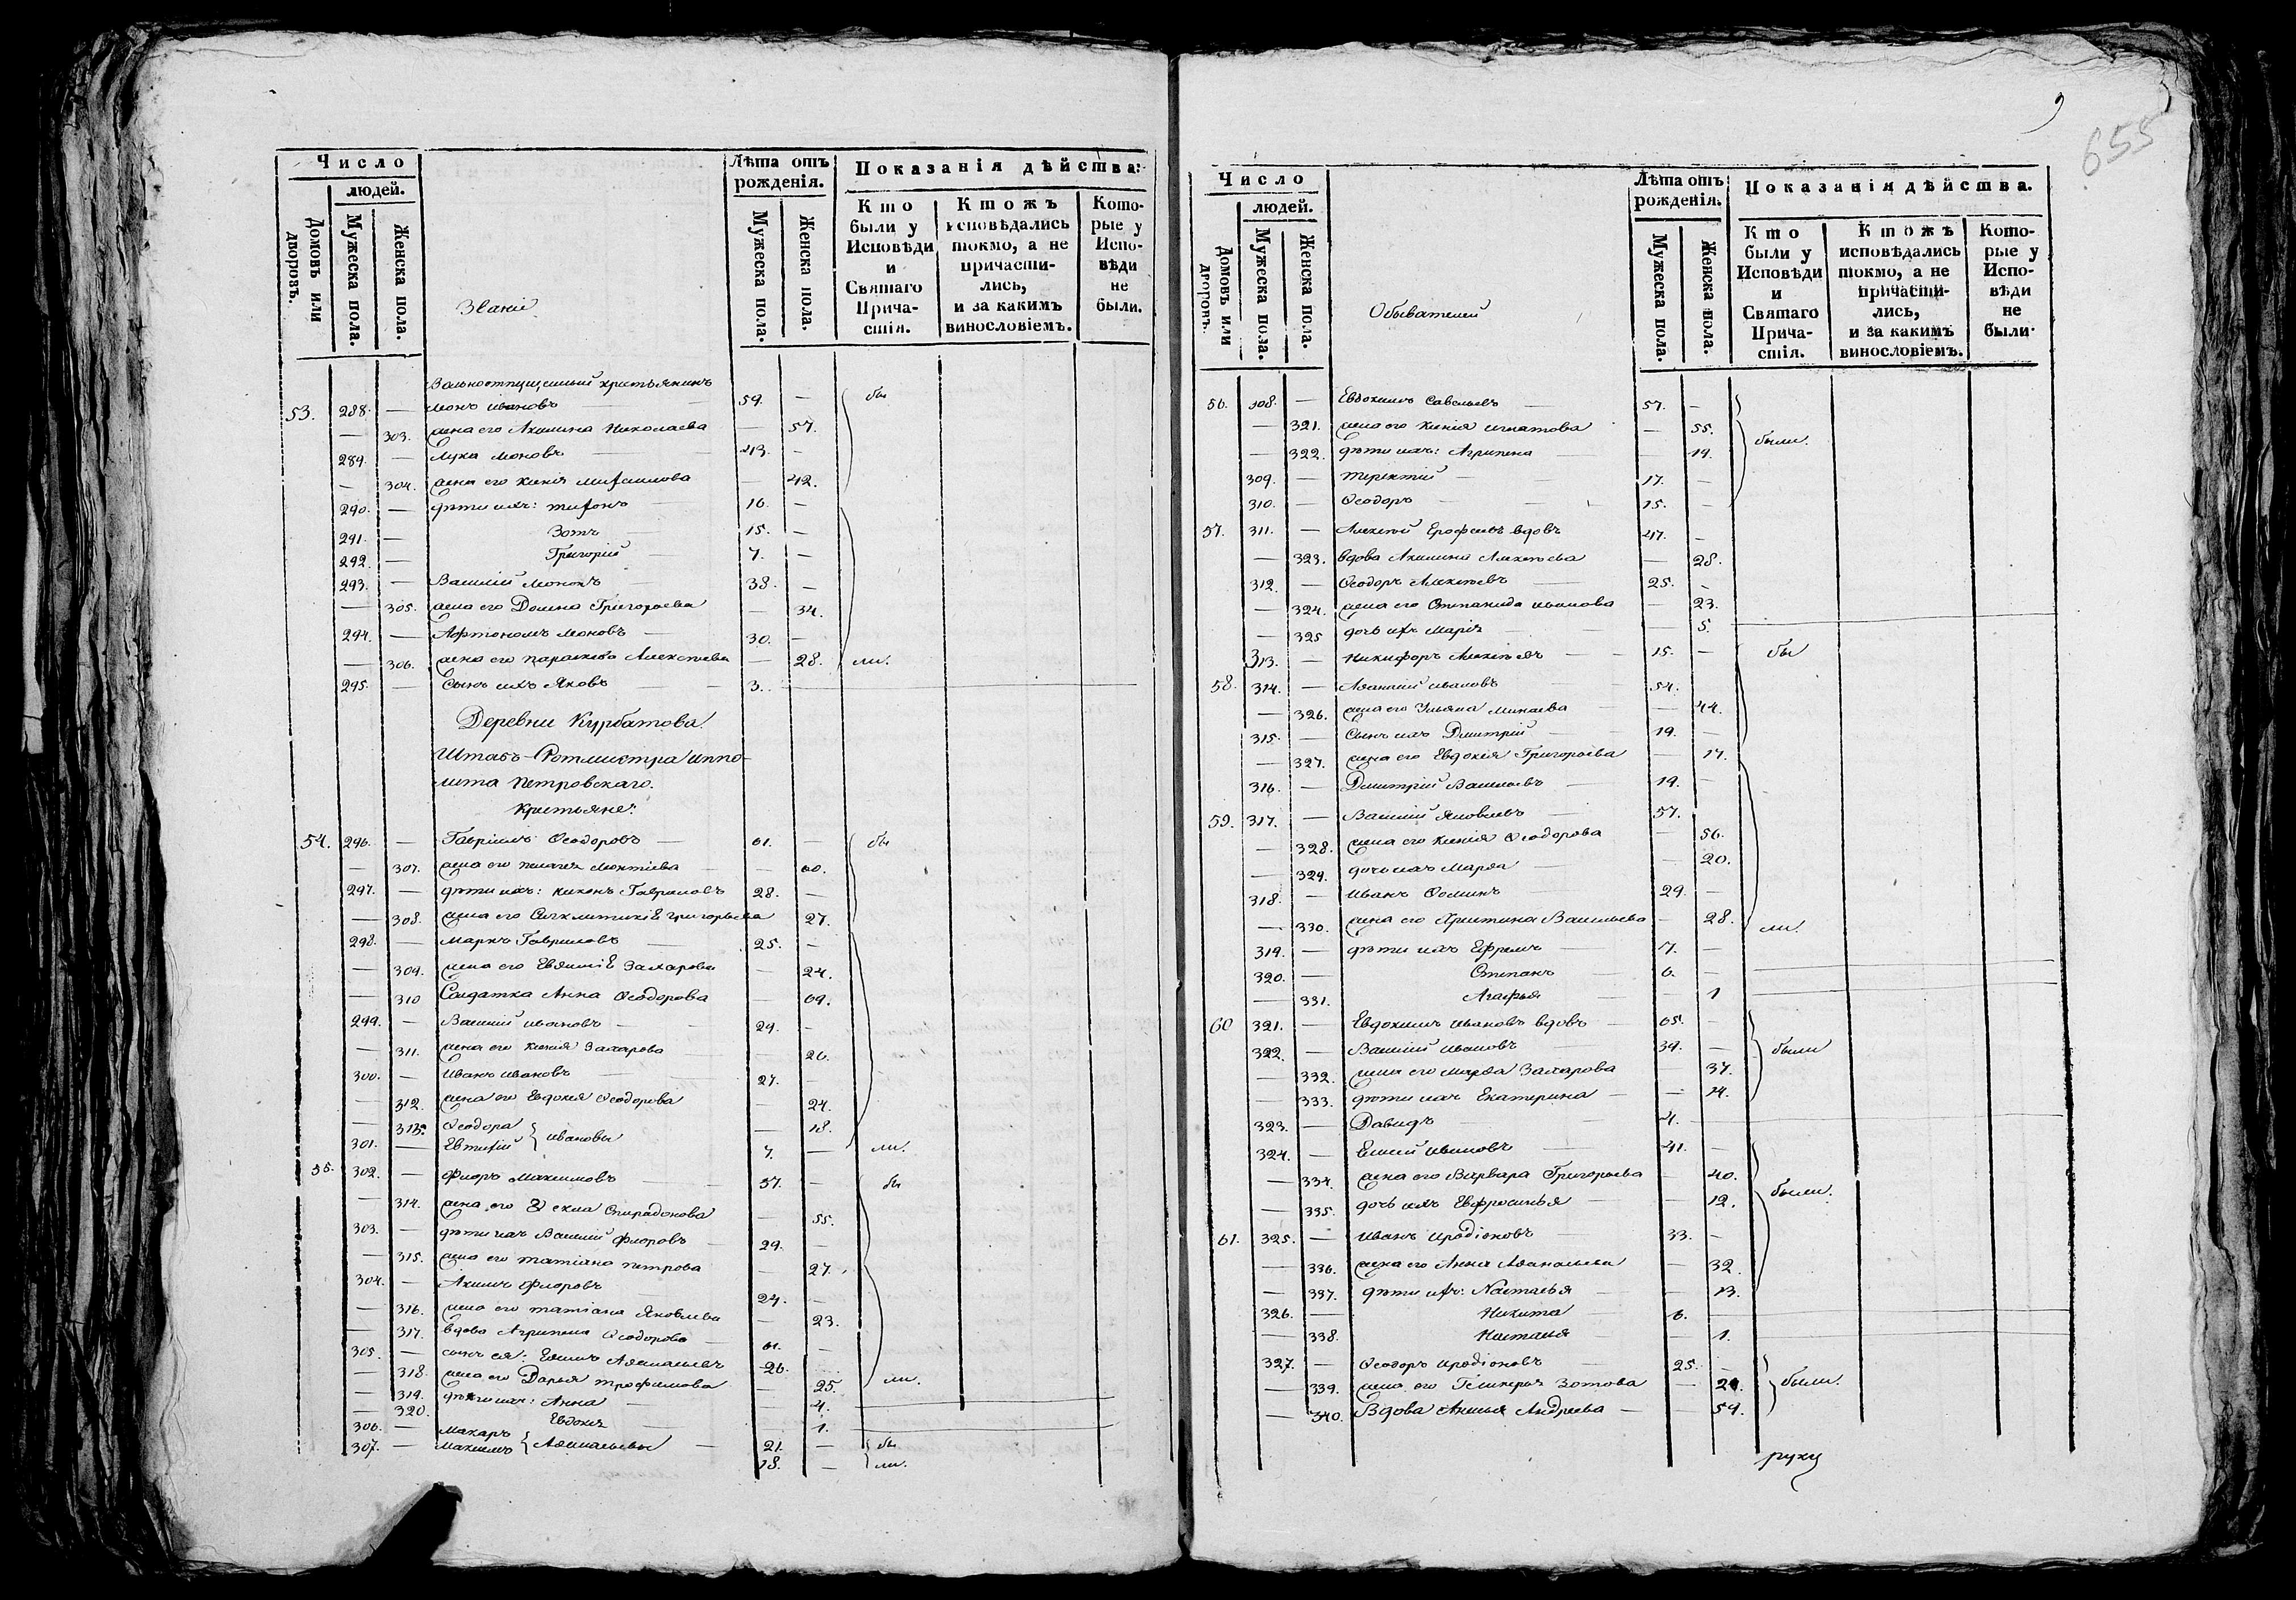 Число
людей.
Домовъ или дворовъ.
Мужеска пола.
Женска пола.
Званіи
Лѣта отъ рожденія.
Мужеска пола.
Женска пола.
Показанія дѣйства:
Кто были у Исповѣди и Святаго Причастія.
Ктожъ исповѣдались токмо, а не причастились, и за какимъ винословіемъ.
Которые у Исповѣди не были.
Вольноотпущенный крестьянинъ
53. 288. — Монъ Ивановъ — 59. — бы
— 303. жена его Акилина Николаева — 57.
289. — Лука Моновъ — 43. —
— 304. жена его Ксенія Михаилова — 42.
290. — дѣти ихъ: Тихонъ 16. —
291. — Зотъ 15. —
292. — Григорій 7. —
293. — Василій Моновъ 38. —
— 305. жена его Домна Григорьева — 34.
294. — Афтономъ Моновъ — 30. —
— 306. жена его Параскева Алексѣева — 28. ли.
295. — Сынъ ихъ Яковъ — 3. —
Деревни Курбатова
Штабъ-Ротмистра Иппо-
лита Петровскаго.
Крестьяне:
54. 296. — Гавріилъ Ѳеодоровъ — 61. — бы
— 307. жена его Пелагея — 60.
297. — дѣти ихъ: Никонъ Гавриловъ 28. —
— 308. жена его Григорьева 27.
298. — Маркъ Гавриловъ — 25. —
— 309. жена его Евѳимія Захарова — 24.
— 310 Солдатка Анна Ѳеодорова — 69.
299. — Василій Ивановъ — 29. —
— 311. жена его Ксенія Захарова — 26.
300. — Иванъ Ивановъ — 27. —
— 312. жена его Евдокія Ѳеодорова — 24.
— 313. Ѳеодора } Ивановы — 18.
301. — Евтихій 7. — ли.
55. 302. — Флоръ Максимовъ — 57. — бы
— 314. жена его Ѳекла Спиридонова — 55.
303. — дѣти ихъ Василій Флоровъ — 29. —
— 315. жена его Татіана Петрова — 27.
304. — Акимъ Флоровъ 24. —
— 316. жена его Татіана Яковлева — 23.
— 317. вдова Агрипина Ѳеодорова — 61. —
305. — сынъ ея: Аѳанасьевъ 26.
— 318. жена его Дарья Трофимова — 25. ли.
— 319. дѣти ихъ: Анна — 4.
— 320. Евдокія 1.
306. — Макаръ } Аѳанасьевы — 21. — бы
307. — Максимъ 18. — ли.
655
Число
людей.
Домовъ или дворовъ.
Мужеска пола.
Женска пола.
Обывателей
Лѣта отъ рожденія.
Мужеска пола.
Женска пола.
Показанія дѣйства.
Кто были у Исповѣди и Святаго Причастія.
Ктожъ исповѣдались токмо, а не причастились, и за какимъ винословіемъ.
Которые у Исповѣди не были.
56. 308. — Евдокимъ Савельевъ — 57. —
— 321. жена его Ксенія Игнатова — 55. были.
— 322. дѣти ихъ: Агрипина — 19.
309. — Терентій — 17. —
310. — Ѳеодоръ — 15. —
57. 311. — Алексѣй Ерофеевъ вдовъ 47. —
— 323. вдова Акилина Алексѣева — 28.
312. — Ѳеодоръ Алексѣевъ — 25. —
— 324. жена его Степанида Иванова — 23.
— 325 дочь ихъ Марія — 5.
313. — Никифоръ Алексѣевъ — 15. — бы
58. 314. — Аѳанасій Ивановъ — 54.
— 326. жена его Ульяна Минаева — 44.
315. — Сынъ ихъ Дмитрій — 19. —
— 327. жена его Евдокія Григорьева — 17.
316. — Дмитрій Васильевъ — 19. —
59. 317. — Василій Яковлевъ — 57.
— 328. жена его Ксенія Ѳеодорова — 56.
— 329. дочь ихъ Марѳа — 20.
318. — Иванъ Ѳоминъ — 29. —
— 330. жена его Христина Васильева — 28. ли.
319. — дѣти ихъ Ефремъ — 7. —
320. — Степанъ — 6. —
— 331. Агафья — 1
60 321. — Евдокимъ Ивановъ вдовъ — 65. —
322. — Василій Ивановъ — 39. — были
— 332. жена его Марѳа Захарова 37.
— 333. дѣти ихъ Екатерина — 14.
323. — Давидъ — 4. —
324. — Ивановъ — 41. —
— 334. жена его Варвара Григорьева — 40.
— 335. дочь ихъ Евфросинья — 12. были.
61. 325. — Иванъ Иродіоновъ — 33. —
— 336. жена его Анна Аѳанасьева — 32.
— 337. дѣти ихъ: Настасья — 13.
326. — Никита — 6. —
— 338. Наталья — 1.
327. — Ѳеодоръ Иродіоновъ — 25. —
— 339. жена его Гликерья Зотова — были.
— 340. Вдова Андреева — 59.
руку